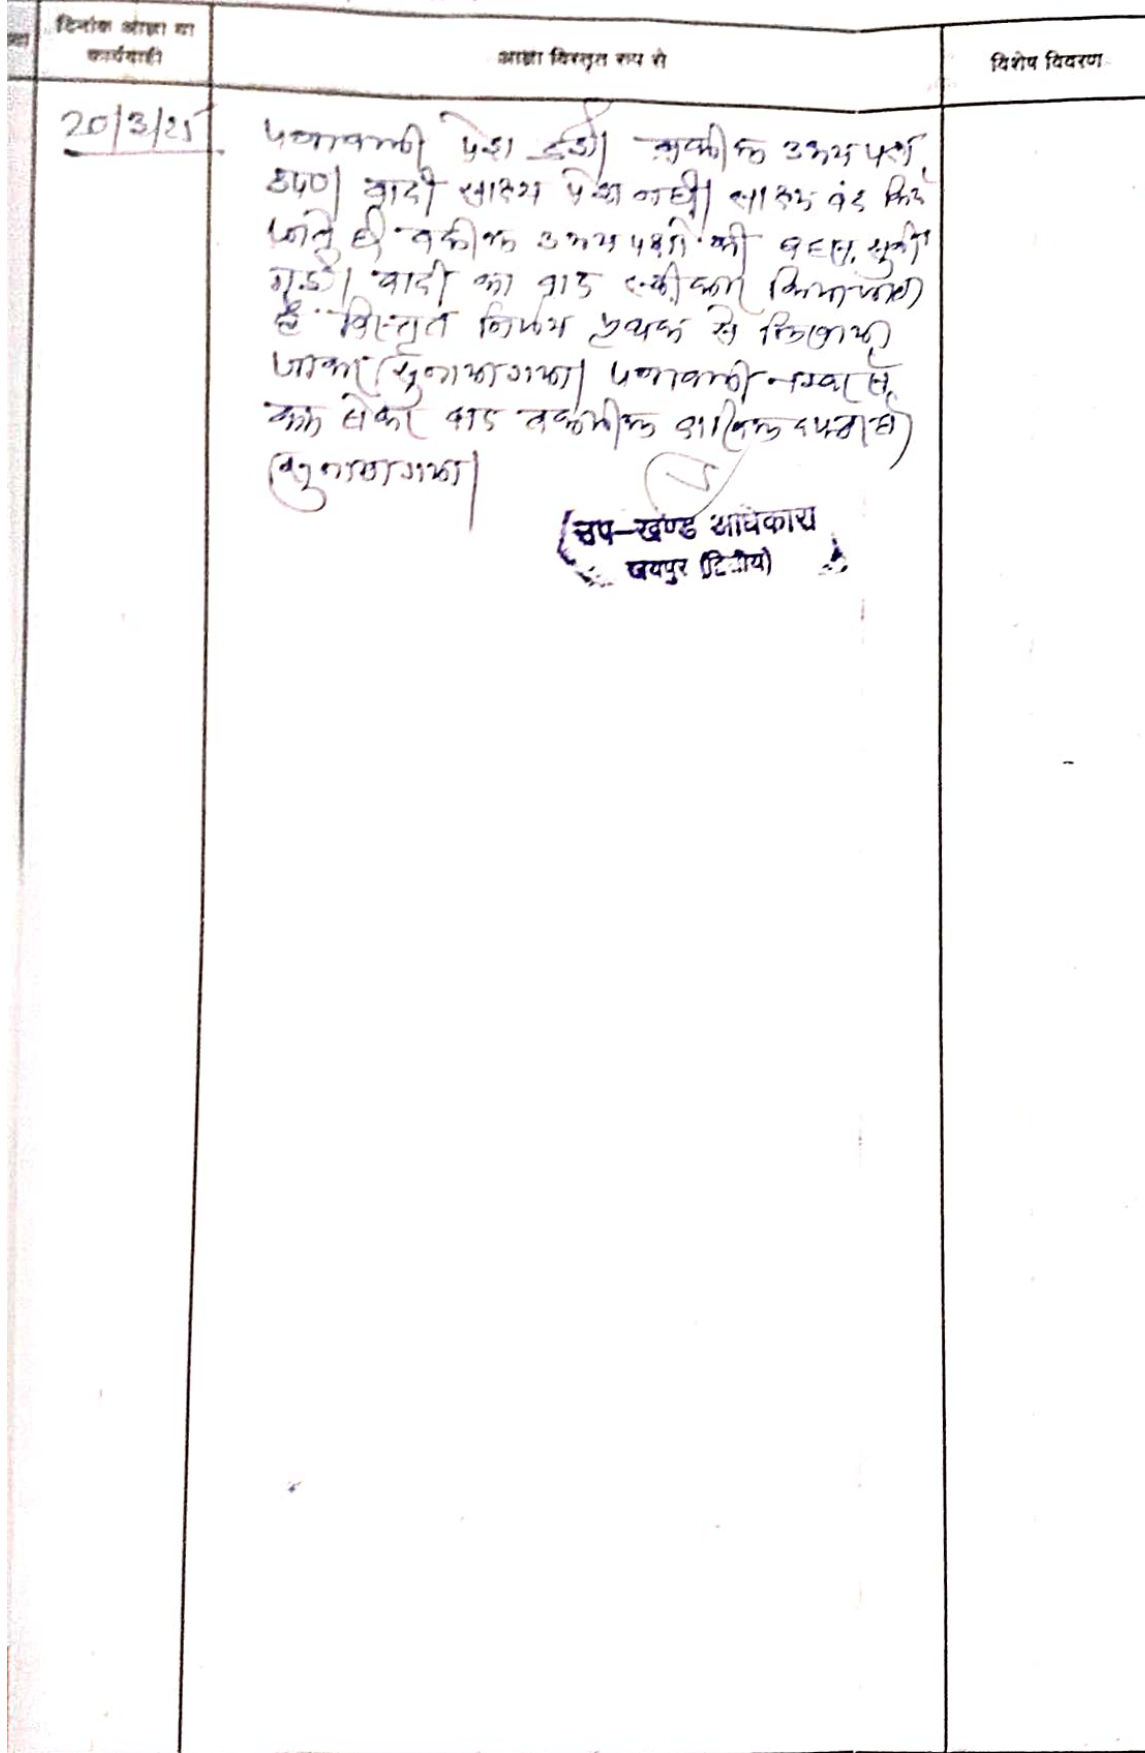 दिनांक आज्ञा या
कार्यवाही
आज्ञा विस्तृत रूप से
विशेष विवरण
20/3/25
पत्रावली पेश हुई। वकील उभय पक्ष
उप0। वादी साक्ष्य पेश नहीं। साक्ष्य बंद किये
जाते है वकील उभय पक्षो की बहस सुनी
गई। वादी का वाद स्वीकार किया जाता
है विस्तृत निर्णय पृथक से लिखाया
जाकर सुनाया गया। पत्रावली नम्बर से
कम होकर बाद तकमील दाखिल दफ्तर हो
सुनाया गया।
उप-खण्ड अधिकारी
जयपुर (द्वितीय)